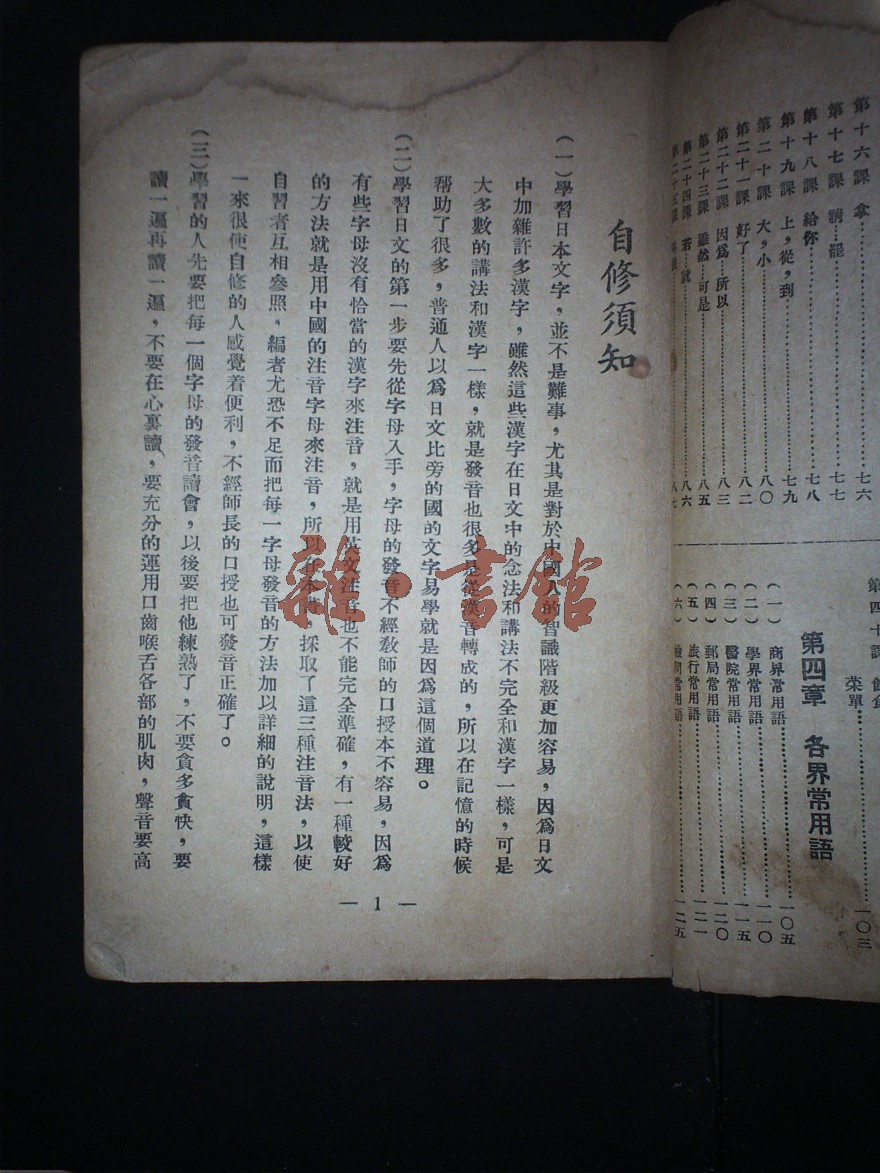 第十六課 拿……七六
第十七課 請…罷……七七
第十八課 給你……七八
第十九課 上，從，到……七九
第二十課 大，小……八〇
第二十一課 好了……八二
第二十二課 因爲…所以……八三
第二十三課 雖然…可是……八五
第二十四課 若…就……八六
第二十五課……八七
第四十課
菜單……一〇三
第四章 各界常用語
(一) 商界常用語……一〇五
(二) 學界常用語……一一〇
(三) 醫院常用語……一一五
(四) 郵局常用語……一二〇
(五) 旅行常用語……一二一
(六) 常用語……一二五
自修須知
(一)學習日本文字，並不是難事，尤其是對於中國人的智識階級更加容易，因爲日文
中加雜許多漢字，雖然這些漢字在日文中的念法和講法不完全和漢字一樣，可是
大多數的講法和漢字一樣，就是發音也很多是從漢音轉成的，所以在記憶的時候
帮助了很多，普通人以爲日文比旁的國的文字易學就是因爲這個道理。
(二)學習日文的第一步要先從字母入手，字母的發音不經教師的口授本不容易，因爲
有些字母沒有恰當的漢字來注音，就是用英文注音也不能完全準確，有一種較好
的方法就是用中國的注音字母來注音，所以在本書，採取了這三種注音法，以使
自習者互相參照。編者尤恐不足而把每一字母發音的方法加以詳細的說明，這樣
一來很使自修的人感覺着便利，不經師長的口授也可發音正確了。
(三)學習的人先要把每一個字母的發音讀會，以後要把他練熟了，不要貪多貪快，要
讀一遍再讀一遍，不要在心裏讀，要充分的運用口齒喉舌各部的肌肉，聲音要高
— 1 —
雜·書館